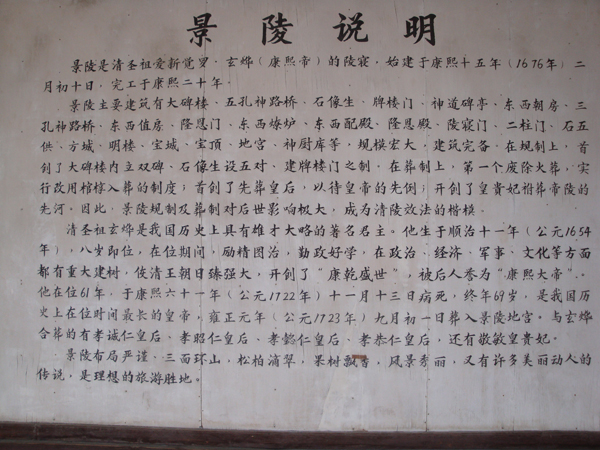 景陵说明
景陵是清圣祖爱新觉罗·玄烨（康熙帝）的陵寝，始建于康熙十五年（1676年）二
月初十日，完工于康熙二十年。
景陵主要建筑有大碑楼、五孔神路桥、石像生、牌楼门、神道碑亭、东西朝房、三
孔神路桥、东西值房、隆恩门、东西燎炉、东西配殿、隆恩殿、陵寝门、二柱门、石五
供、方城、明楼、宝城、宝顶、地宫、神厨库等，规模宏大，建筑完备。在规制上，首
创了大碑楼内立双碑、石像生设五对、建牌楼门之制，在葬制上，第一个废除火葬，实
行改用棺椁入葬的制度；首创了先葬皇后，以待皇帝的先例；开创了皇贵妃祔葬帝陵的
先河。因此，景陵规制及葬制对后世影响极大，成为清陵效法的楷模。
清圣祖玄烨是我国历史上具有雄才大略的著名君主。他生于顺治十一年（公元1654
年），八岁即位，在位期间，励精图治，勤政好学，在政治、经济、军事、文化等方面
都有重大建树，使清王朝日臻强大，开创了“康乾盛世”，被后人秀为“康熙大帝”。
他在位61年，于康熙六十一年（公元1722年）十一月十三日病死，终年69岁，是我国历
史上在位时间最长的皇帝，雍正元年（公元1723年）九月初一日葬入景陵地宫。与玄烨
合葬的有孝诚仁皇后、孝昭仁皇后、孝懿仁皇后、孝恭仁皇后，还有敬敏皇贵妃。
景陵布局严谨、三面环山，松柏滴翠，果树飘香，风景秀丽，又有许多美丽动人的
传说，是理想的旅游胜地。